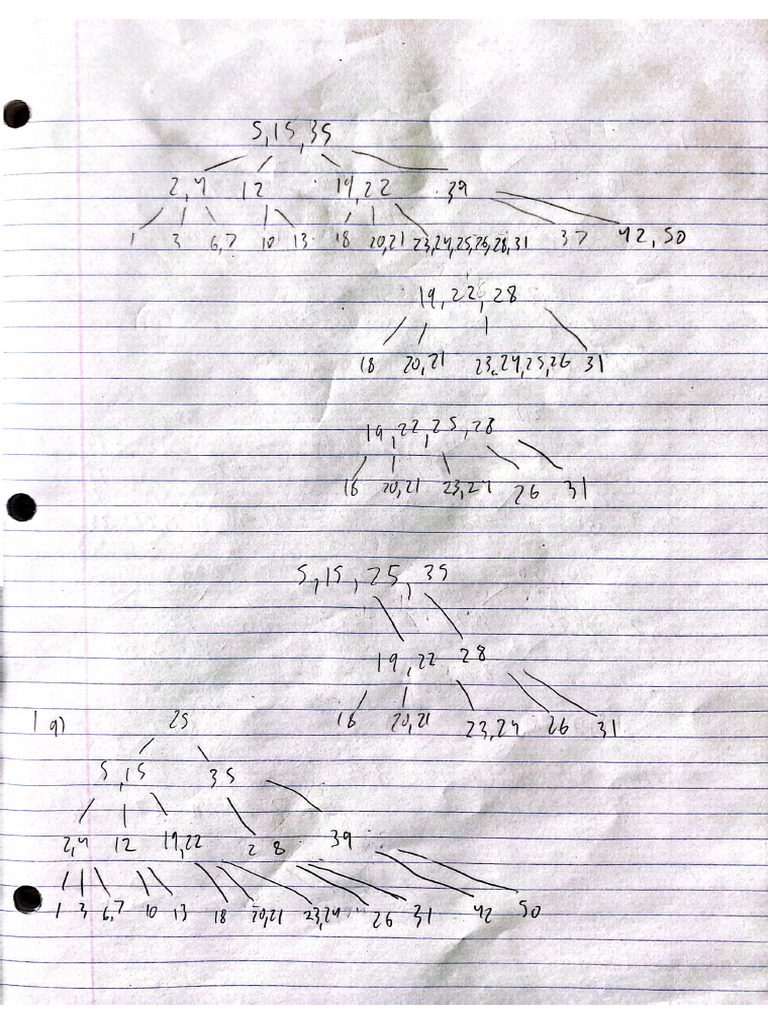 5,15,35
2,4 12 19,22 39
1 3 6,7 10 13 18 20,21 23,24,25,26,28,31 37 42,50
19,22,28
18 20,21 23,24,25,26 31
19,22,25,28
18 20,21 23,24 26 31
5,15,25,35
19,22 28
18 20,21 23,24 26 31
1a) 25
5,15 35
2,4 12 19,22 28 39
1 3 6,7 10 13 18 20,21 23,24 26 31 42 50